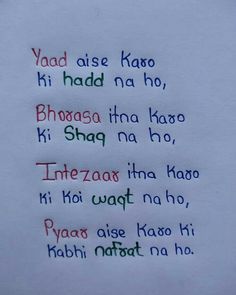 Yaad aise Karo
Ki hadd na ho,
Bhorasa itna Karo
Ki Shaq na ho,
Intezaar itna Karo
Ki Koi waqt na ho,
Pyaar aise Karo Ki
Kabhi nafrat na ho.